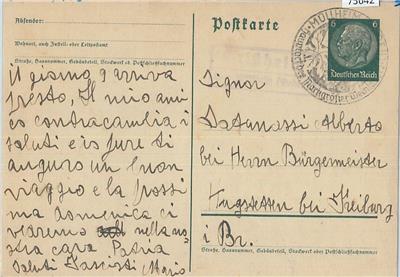 75042
Absender:
Wohnort, auch Zustell- oder Leitpostamt
Straße, Hausnummer, Gebäudeteil, Stockwerk od. Postschließfachnummer
il giorno 9 arriva
presto, Il mio ami
co contracambia i
saluti e io pure ti
auguro un buon
viaggio e la prossi
ma domenica ci
vedremo nella no
stra cara Patria
Saluti Fascisti Mario
Postkarte
MÜLLHEIM
6 6
Deutsches Reich
Signor
Alberto
bei Herrn Bürgermeister
Hugstetten bei Freiburg
i Br.
Straße, Hausnummer, Gebäudeteil, Stockwerk oder Postschließfachnummer